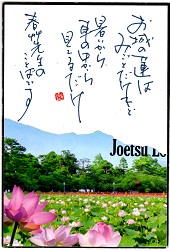 お城の蓮は
みごとだけど
暑いから
車の中から
見るだけ
春艸先生の
ことばです
Joetsu